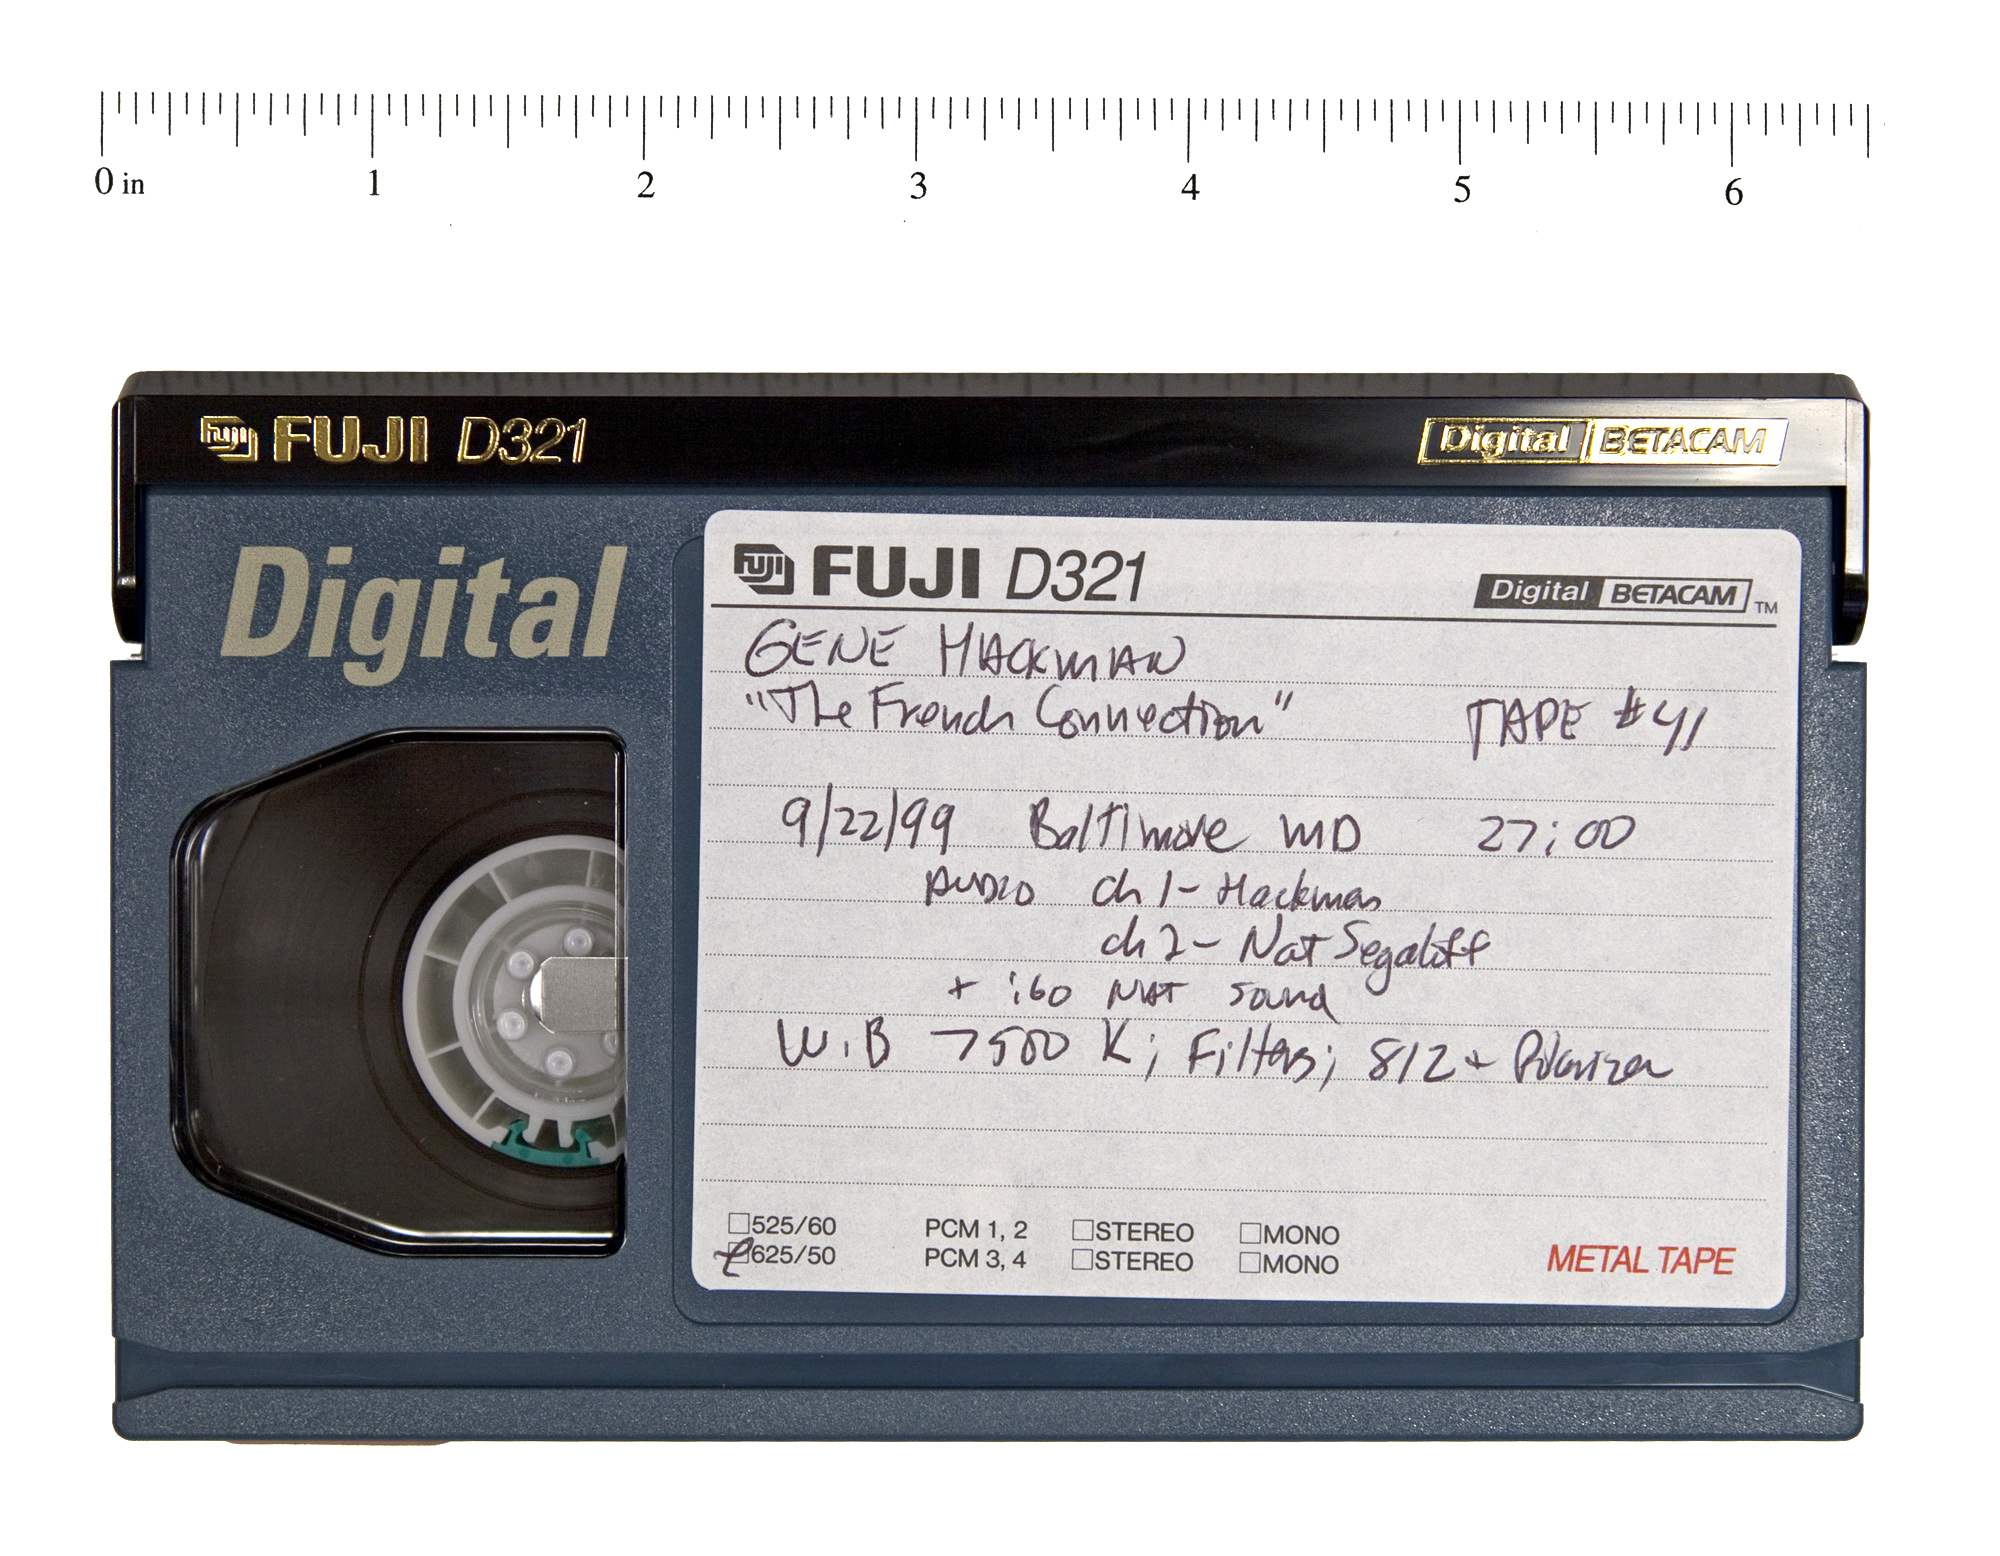 0 in 1 2 3 4 5 6
FUJI FUJI D321
Digital BETACAM
Digital
FUJI FUJI D321
Digital BETACAM TM
GENE HACKMAN
"The French Connection" TAPE #41
9/22/99 Baltimore MD 27:00
AUDIO ch 1- Hackman
ch 2- Nat Segaloff
+ :60 NAT sound
W.B 7500 K; Filters; 812 + Polarizer
525/60 PCM 1, 2 STEREO MONO
625/50 PCM 3, 4 STEREO MONO
METAL TAPE